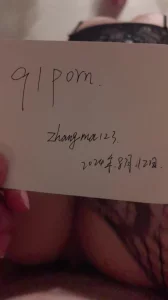 91porn.
zhangma123.
2024年.8月.12日.